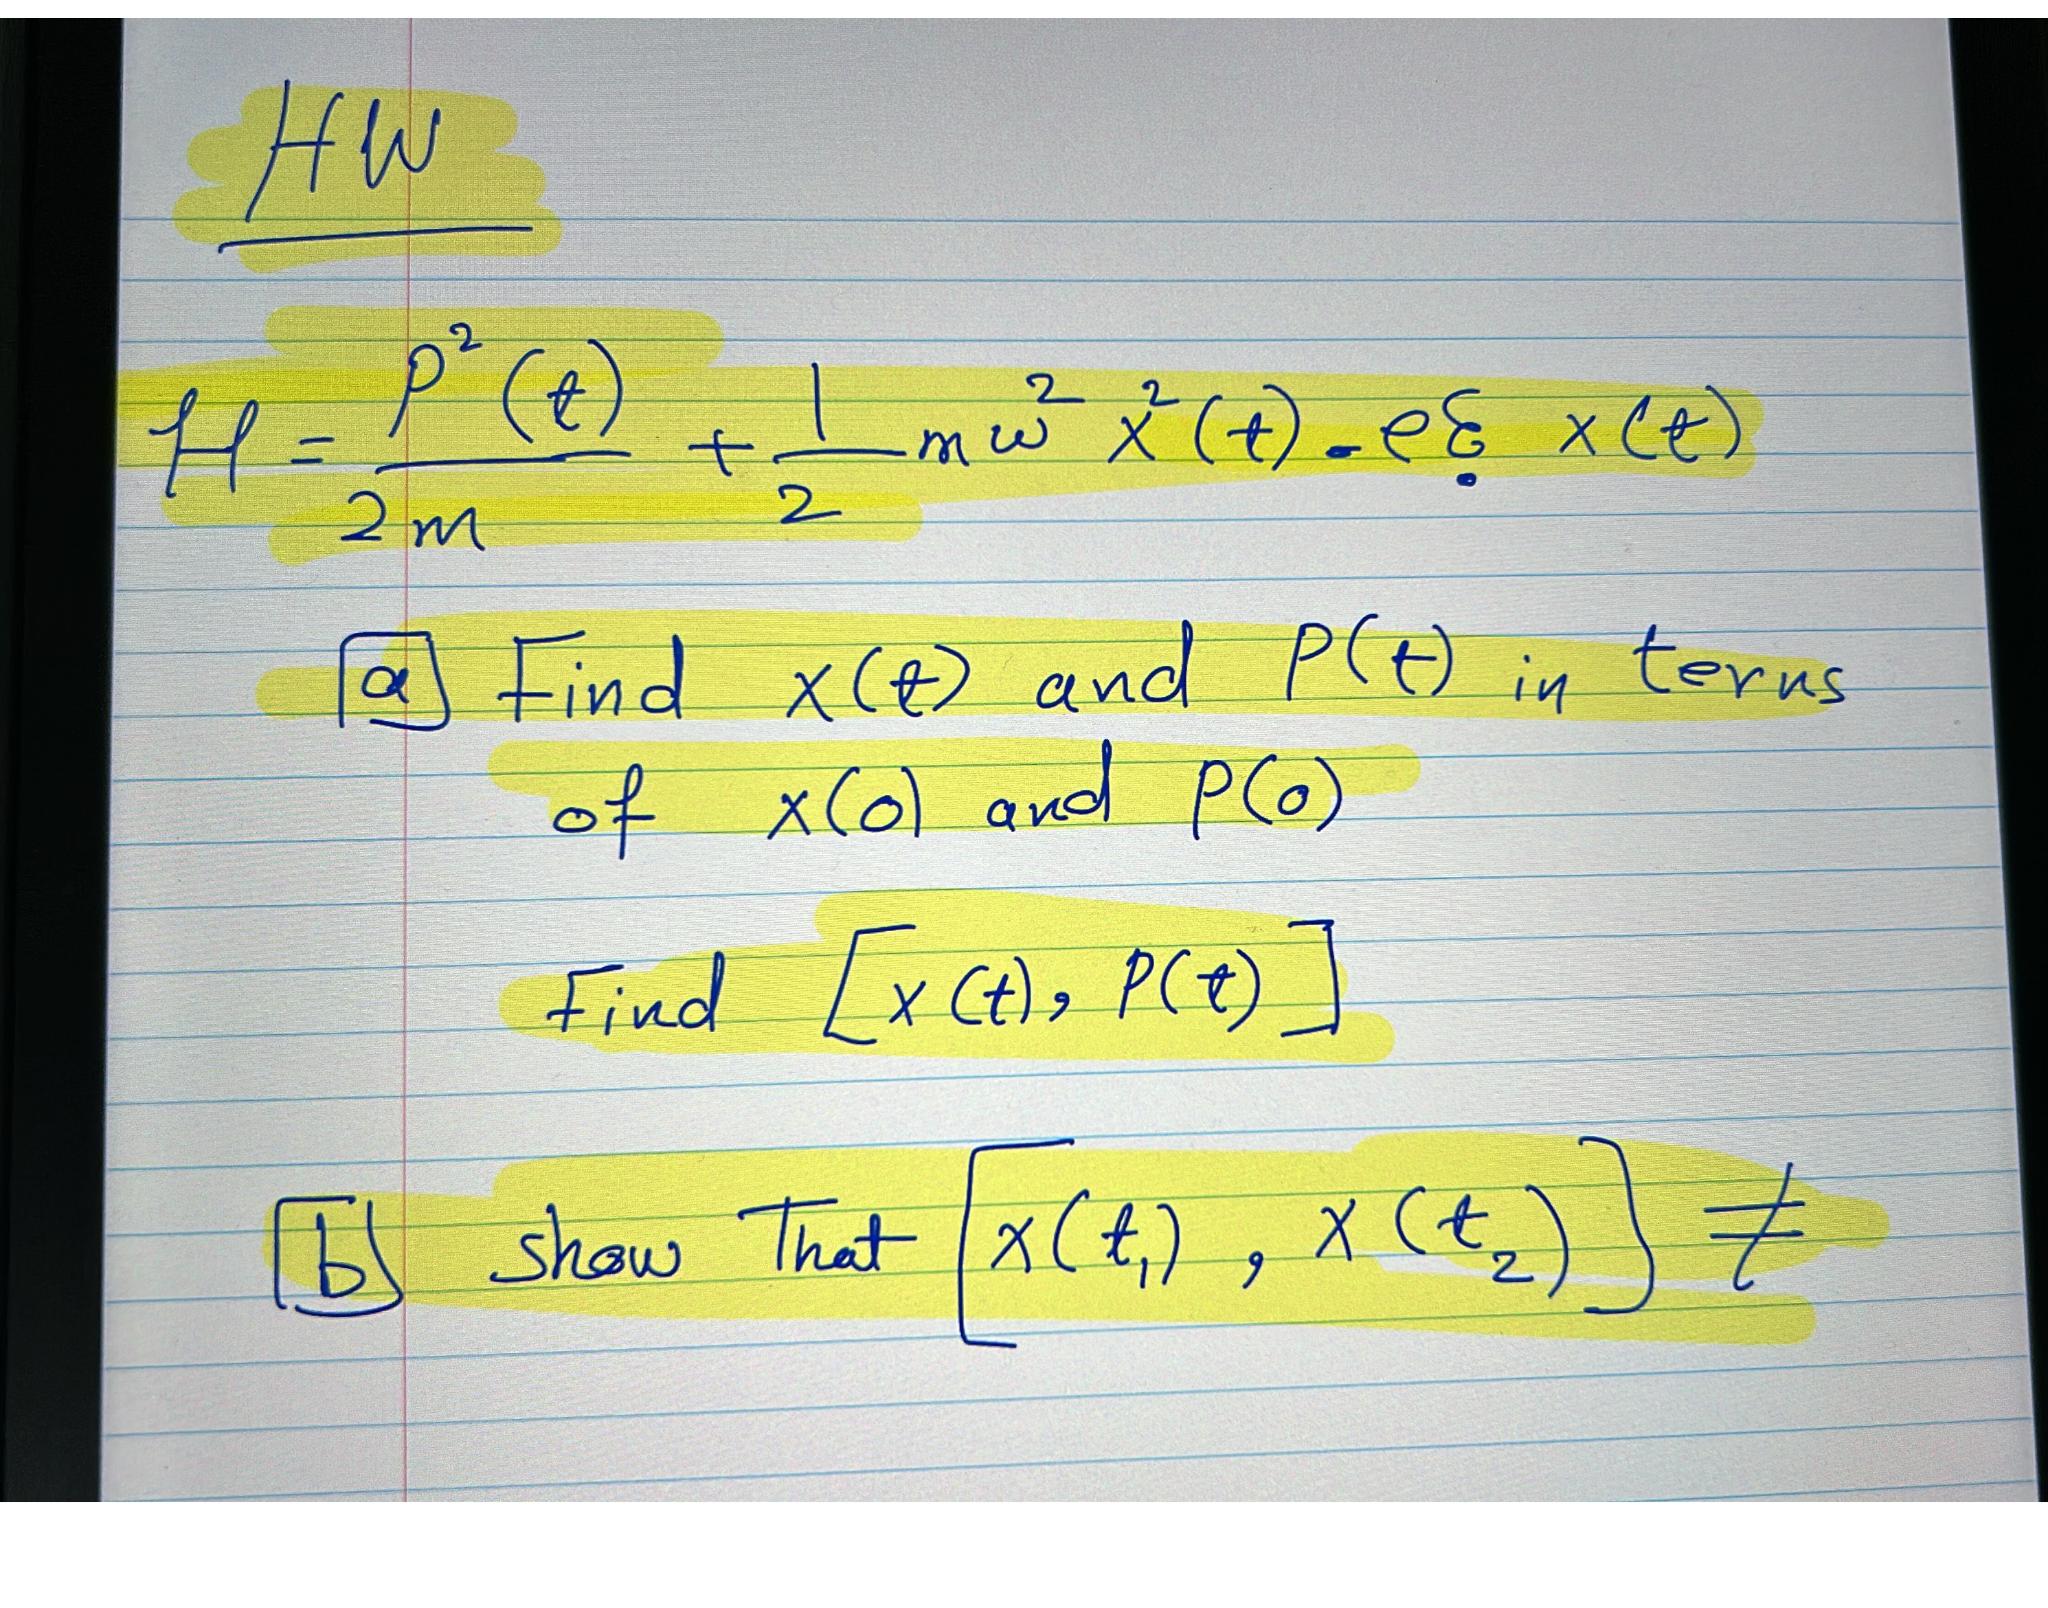 HW
H = P²(t)/2m + 1/2 mω² x²(t) - eξ. x(t)
a Find x(t) and P(t) in terms
of x(0) and P(0)
Find [x(t), P(t)]
b show That [x(t₁), x(t₂)] ≠